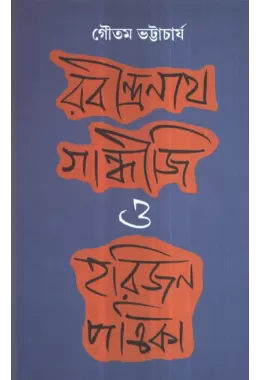 গৌতম ভট্টাচার্য
রবীন্দ্রনাথ
গান্ধীজি
ও
হরিজন
পত্রিকা